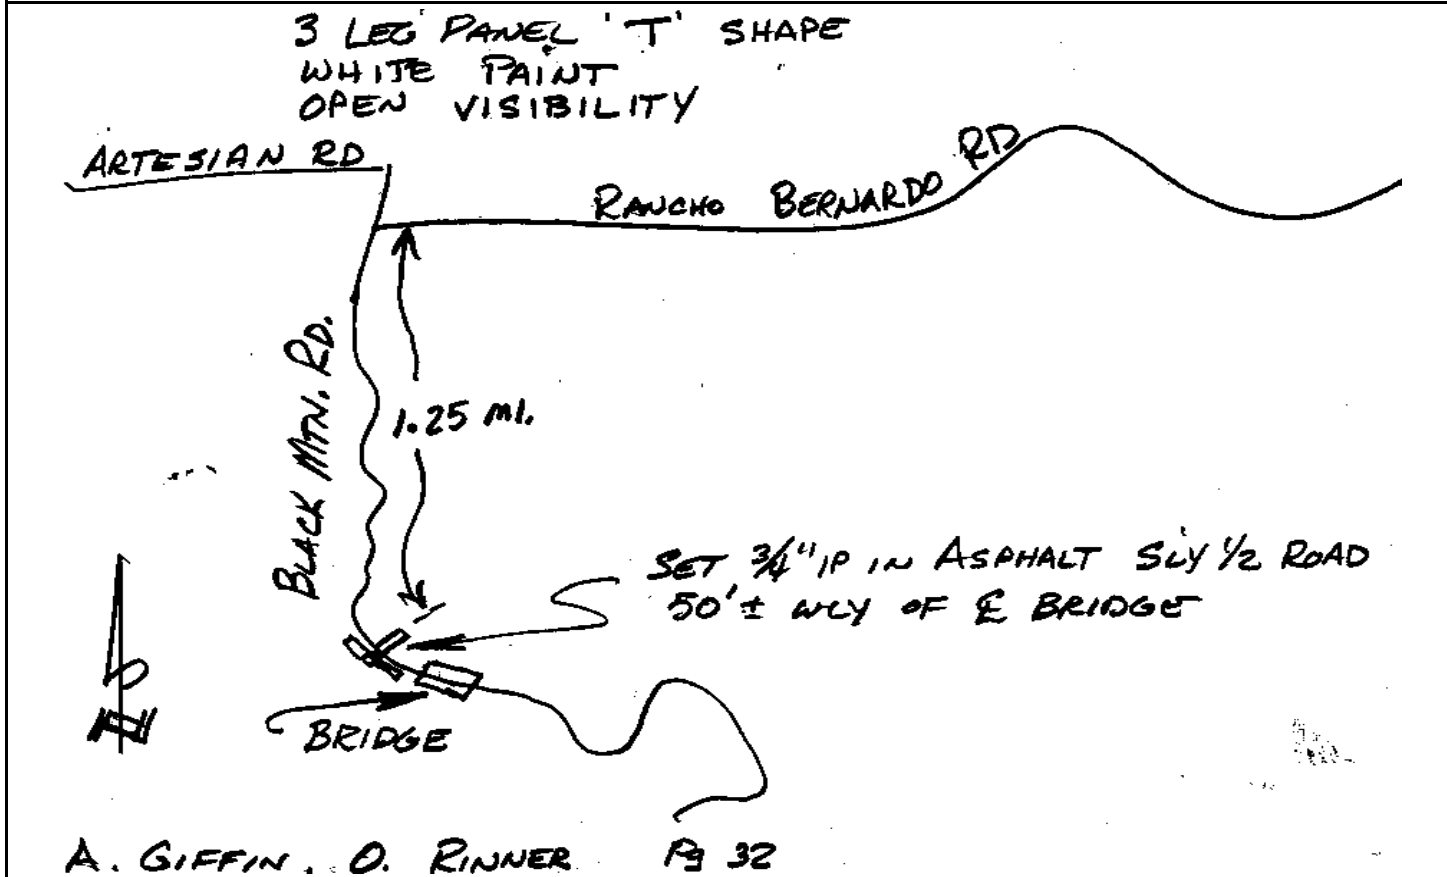 3 LEG PANEL 'T' SHAPE
WHITE PAINT
OPEN VISIBILITY
ARTESIAN RD
RANCHO BERNARDO RD
BLACK MTN. RD.
1.25 MI.
SET 3/4" IP IN ASPHALT SLY 1/2 ROAD
50'± WLY OF ℄ BRIDGE
BRIDGE
A. GIFFIN, O. RINNER Pg 32